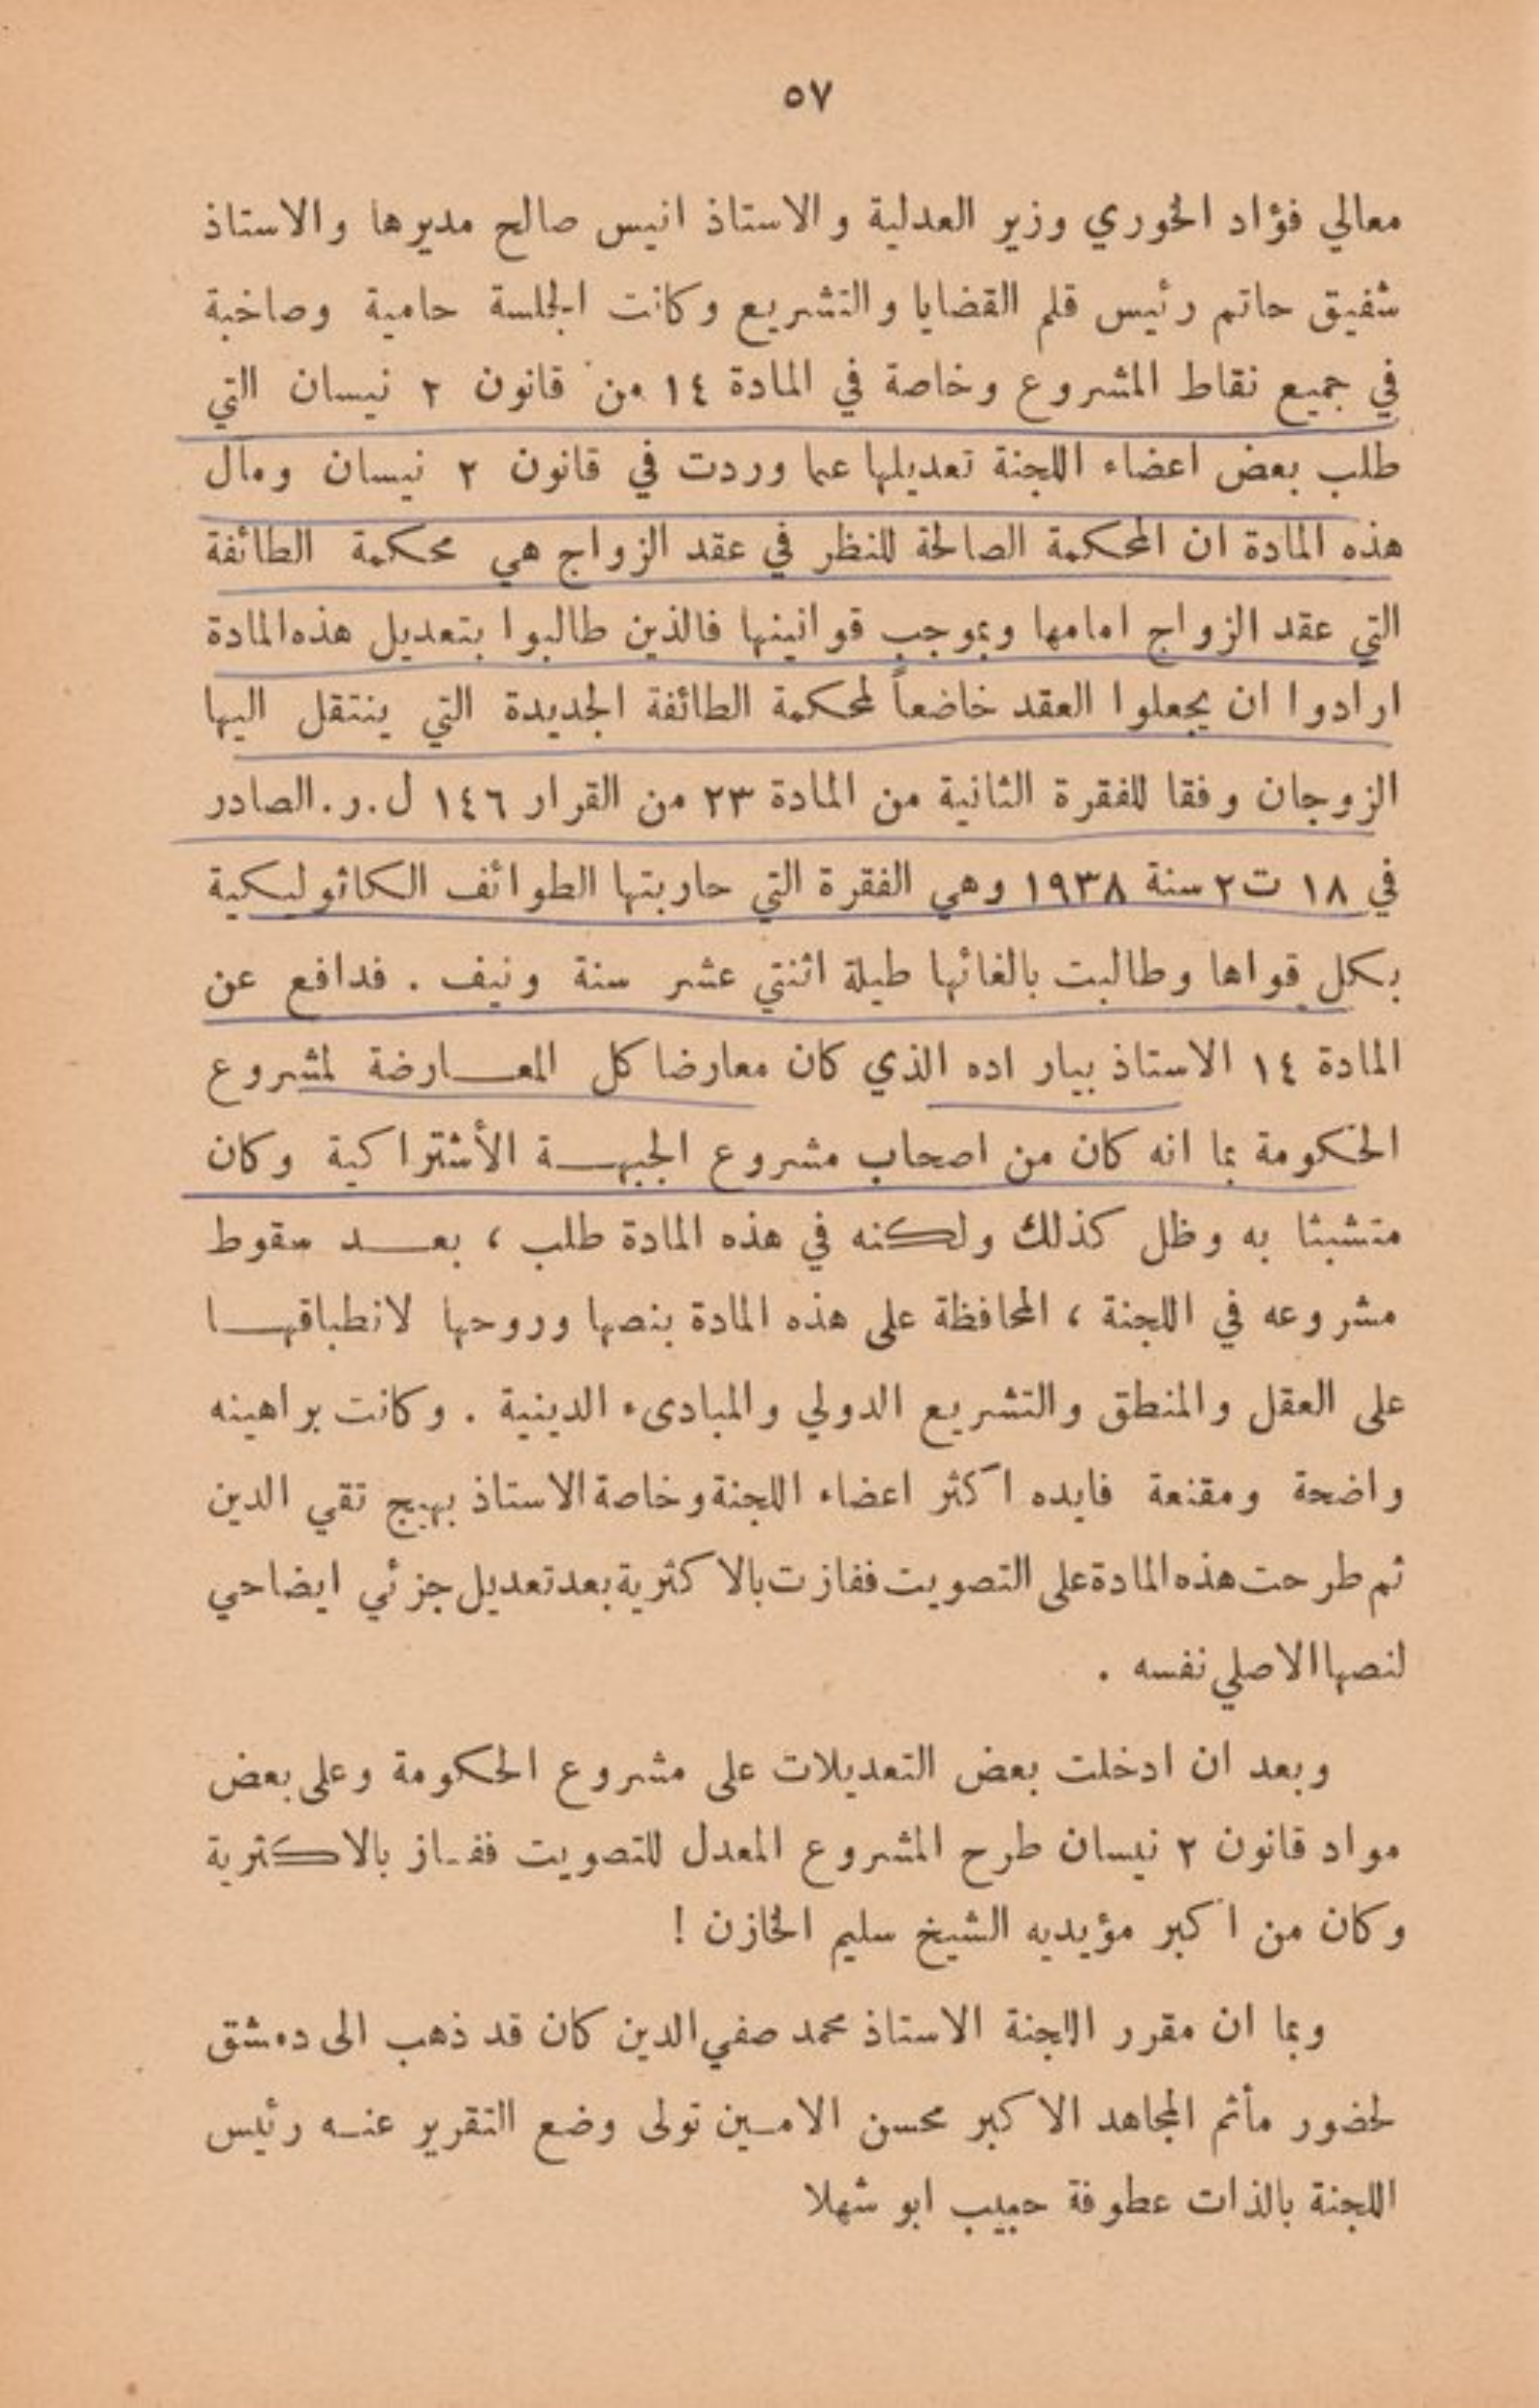 ٥٧
معالي فؤاد الخوري وزير العدلية والاستاذ انيس صالح مديرها والاستاذ
شفيق حاتم رئيس قلم القضايا والتشريع وكانت الجلسة حامية وصاخبة
في جميع نقاط المشروع وخاصة في المادة ١٤ من قانون ٢ نيسان التي
طلب بعض اعضاء اللجنة تعديلها عما وردت في قانون ٢ نيسان ومآل
هذه المادة ان المحكمة الصالحة للنظر في عقد الزواج هي محكمة الطائفة
التي عقد الزواج امامها وبموجب قوانينها فالذين طالبوا بتعديل هذه المادة
ارادوا ان يجعلوا العقد خاضعاً لمحكمة الطائفة الجديدة التي ينتقل اليها
الزوجان وفقا للفقرة الثانية من المادة ٢٣ من القرار ١٤٦ ل.ر. الصادر
في ١٨ ت٢ سنة ١٩٣٨ وهي الفقرة التي حاربتها الطوائف الكاثوليكية
بكل قواها وطالبت بالغائها طيلة اثنتي عشر سنة ونيف . فدافع عن
المادة ١٤ الاستاذ بيار اده الذي كان معارضا كل المعـارضة لمشروع
الحكومة بما انه كان من اصحاب مشروع الجبهـة الأشتراكية وكان
متشبثا به وظل كذلك ولكنه في هذه المادة طلب ، بعـد سقوط
مشروعه في اللجنة ، المحافظة على هذه المادة بنصها وروحها لانطباقهـا
على العقل والمنطق والتشريع الدولي والمبادىء الدينية . وكانت براهينه
واضحة ومقنعة فايده اكثر اعضاء اللجنة وخاصة الاستاذ بهيج تقي الدين
ثم طرحت هذه المادة على التصويت ففازت بالاكثرية بعد تعديل جزئي ايضاحي
لنصها الاصلي نفسه .
وبعد ان ادخلت بعض التعديلات على مشروع الحكومة وعلى بعض
مواد قانون ٢ نيسان طرح المشروع المعدل للتصويت ففـاز بالاكثرية
وكان من اكبر مؤيديه الشيخ سليم الخازن !
وبما ان مقرر اللجنة الاستاذ محمد صفي الدين كان قد ذهب الى دمشق
لحضور مأتم المجاهد الاكبر محسن الامـين تولى وضع التقرير عنـه رئيس
اللجنة بالذات عطوفة حبيب ابو شهلا